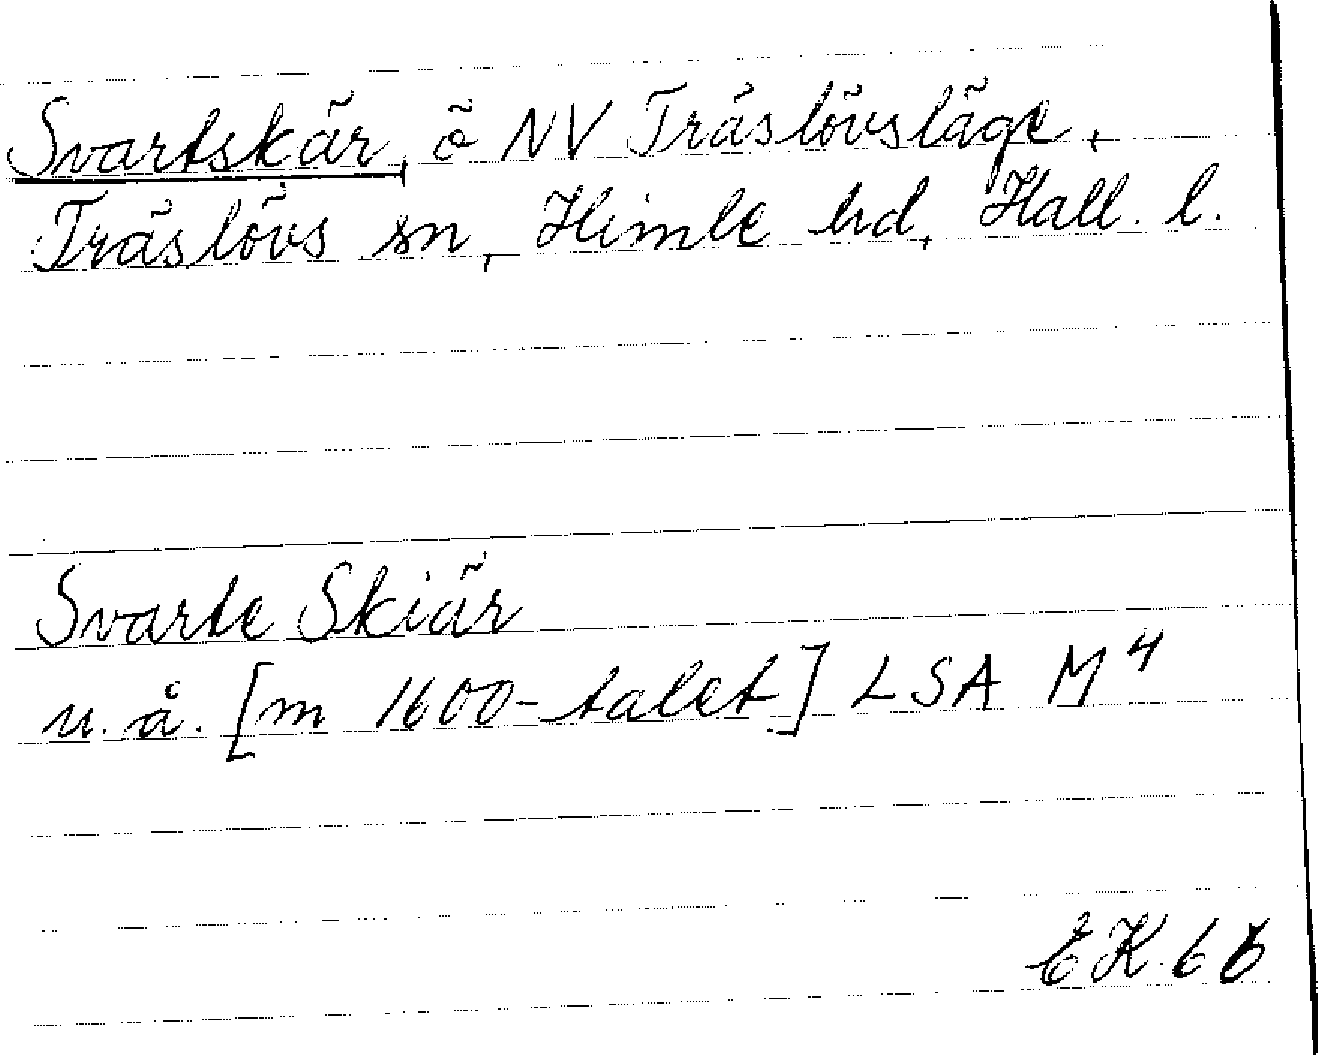 Svartskär, ö NV Träslövsläge,
Träslövs sn, Himle hd, Hall. l.
Svarte Skiär
u.å. [m 1600-talet] LSA M4
EK.66